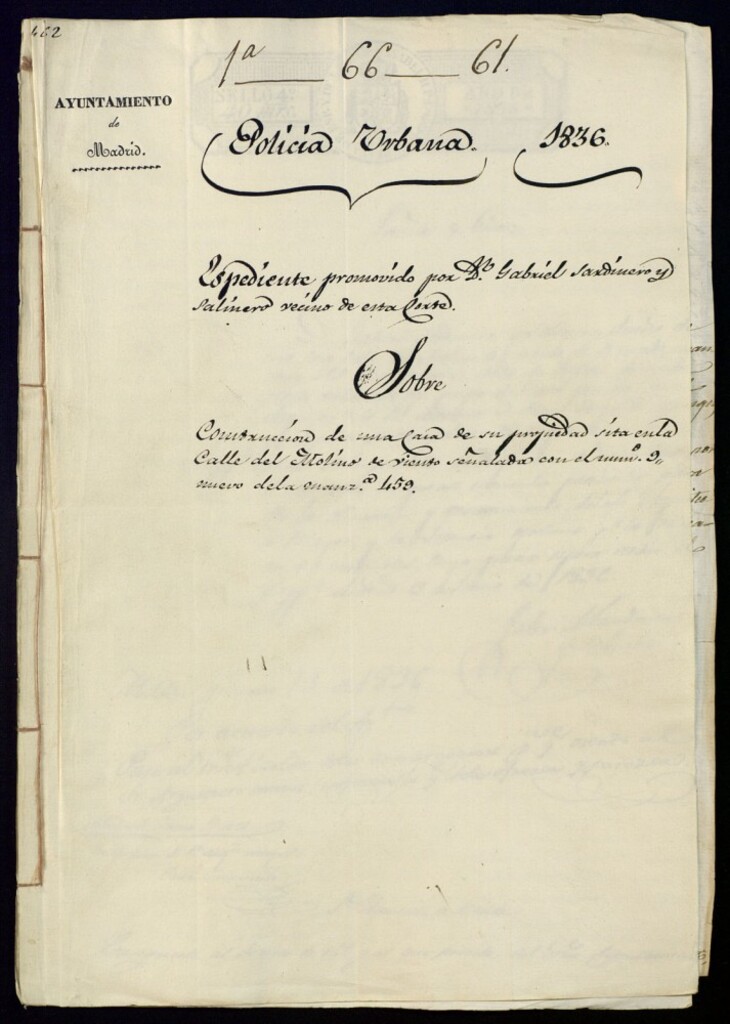 462
1ª 66 61.
AYUNTAMIENTO
de
Madrid.
Policia Urbana. 1836.
Espediente promovido por Dn. Gabriel Sardinero y
Salinero vecino de esta Corte.
Sobre
Construccion de una Casa de su propiedad sita en la
Calle del Molino de viento señalada con el num.º 9,,
nuevo de la manz.ª 459.